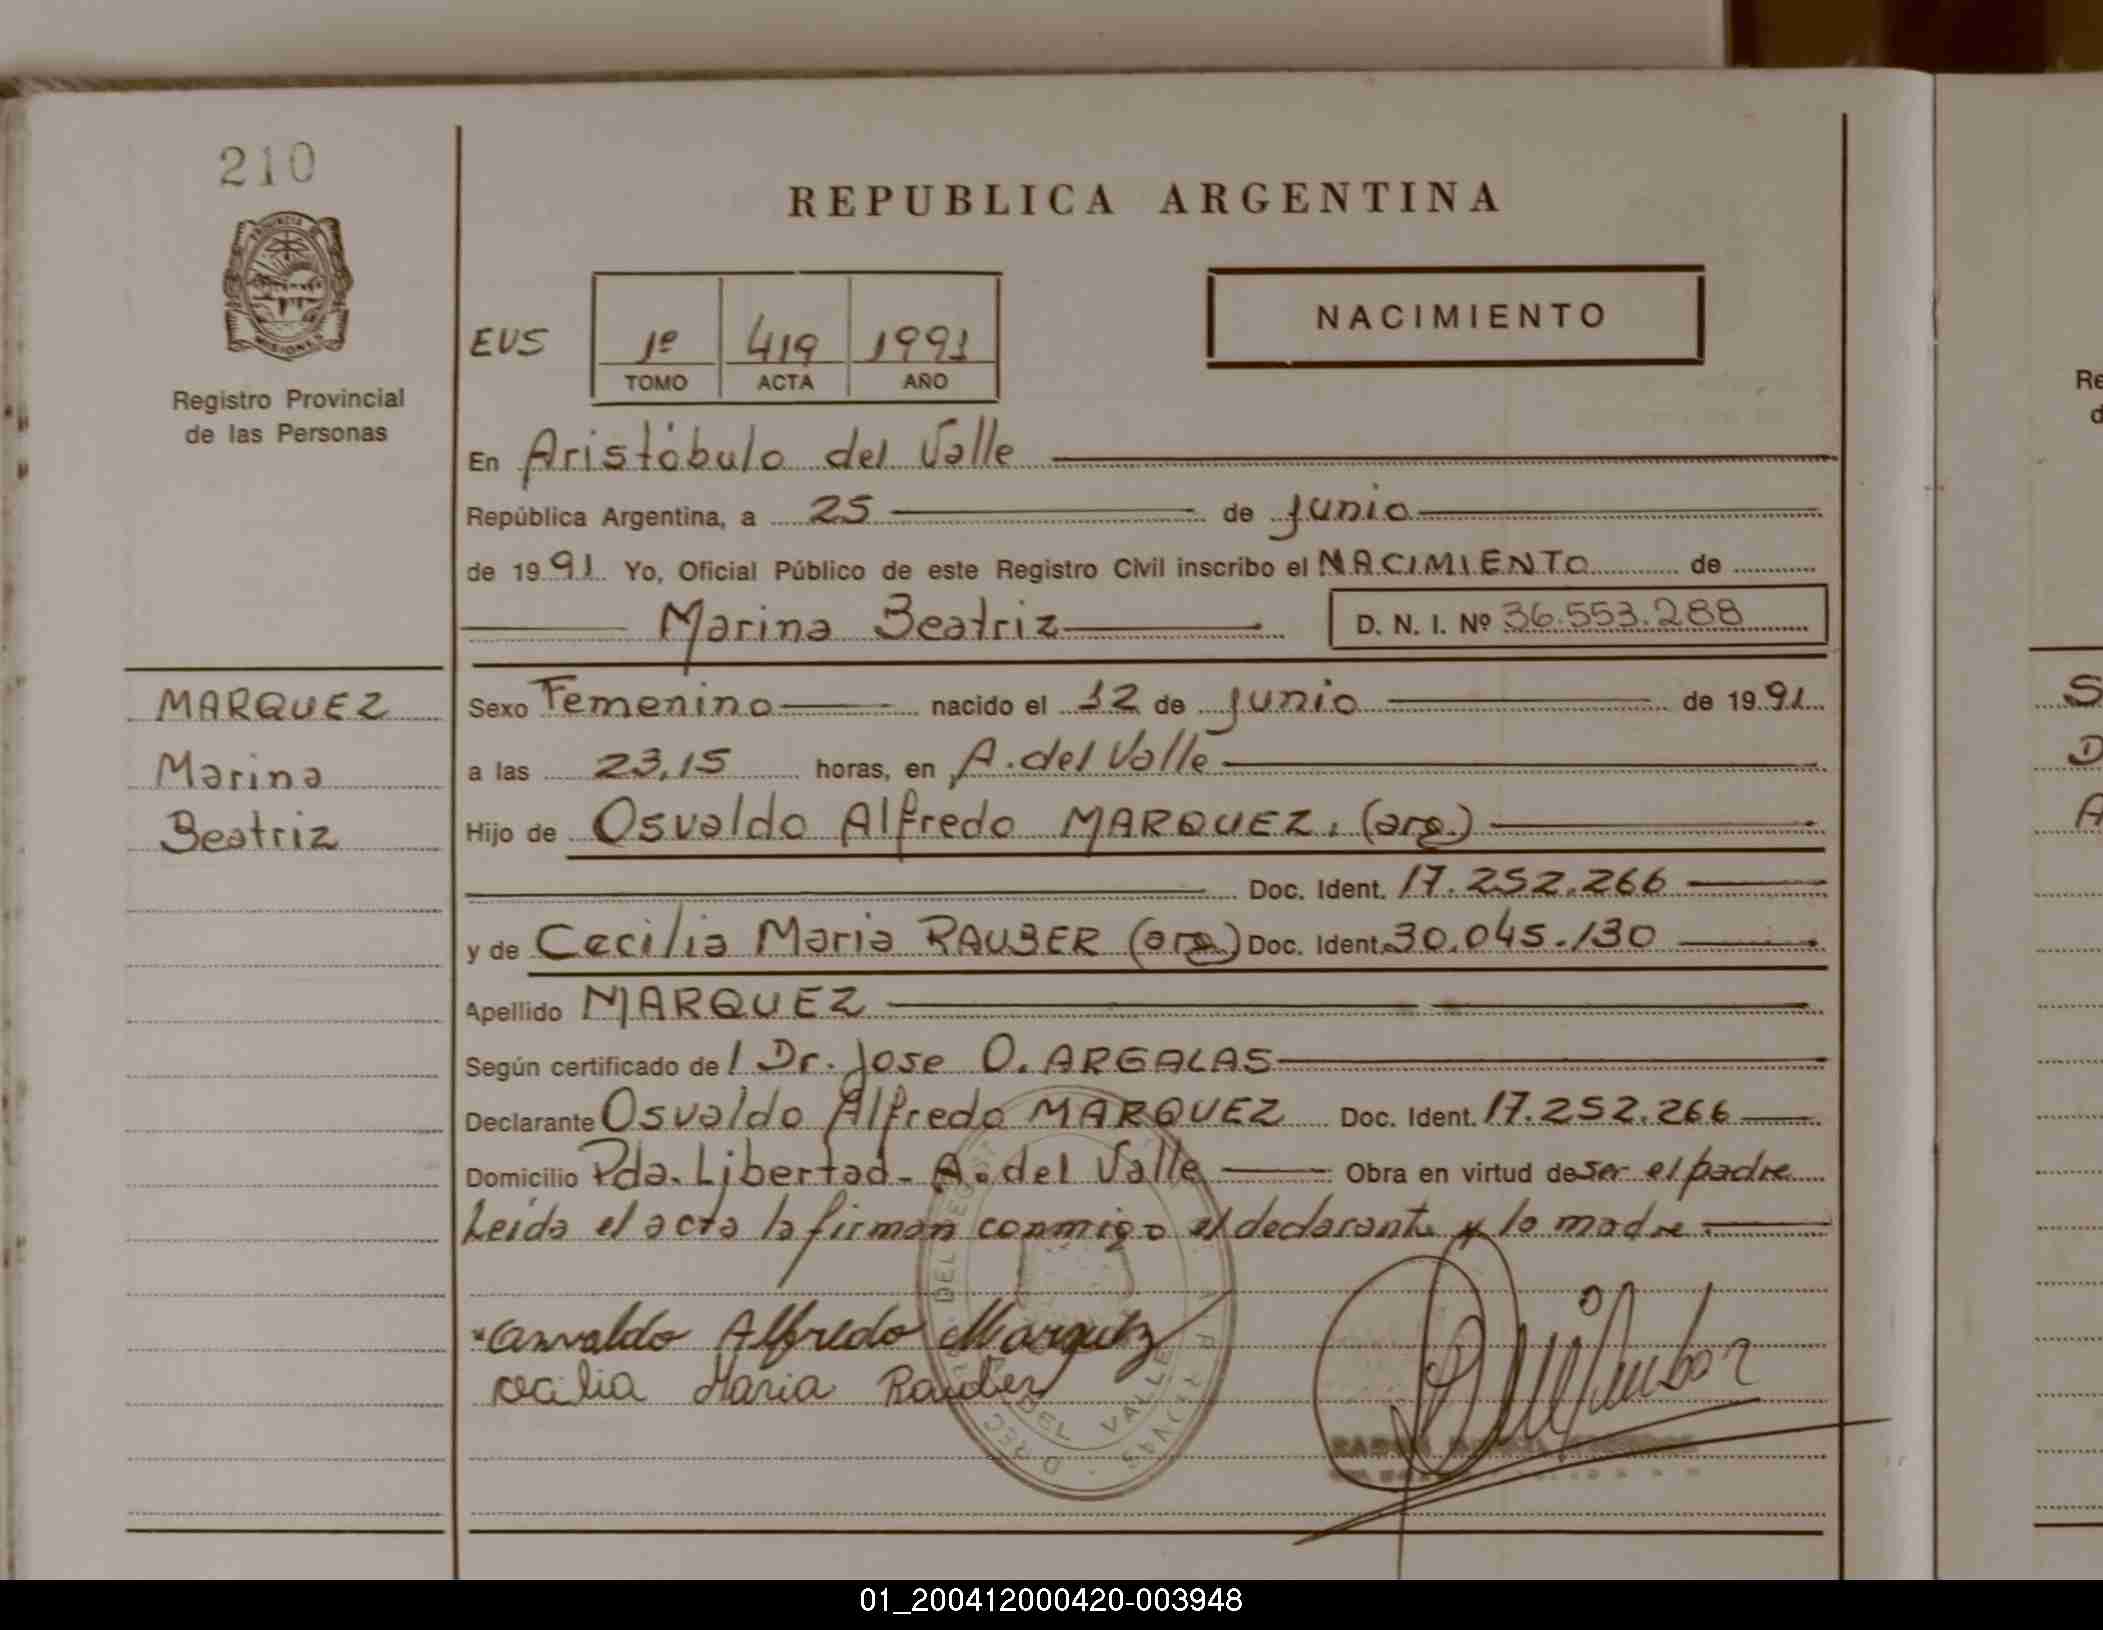 210
PROVINCIA DE
MISIONES
Registro Provincial
de las Personas
REPUBLICA ARGENTINA
EUS
1º 419 1991
TOMO ACTA AÑO
NACIMIENTO
En Aristóbulo del Valle
República Argentina, a 25 de Junio
de 1991 Yo, Oficial Público de este Registro Civil inscribo el NACIMIENTO de
Marina Beatriz D. N. I. Nº 36.553.288
MARQUEZ
Marina
Beatriz
Sexo Femenino nacido el 12 de Junio de 1991
a las 23,15 horas, en A. del Valle
Hijo de Osvaldo Alfredo MARQUEZ. (arg.)
Doc. Ident. 17.252.266
y de Cecilia Maria RAUBER (arg.) Doc. Ident. 30.045.130
Apellido MARQUEZ
Según certificado de l Dr. Jose O. ARGALAS
Declarante Osvaldo Alfredo MARQUEZ Doc. Ident. 17.252.266
Domicilio Pda. Libertad - A. del Valle Obra en virtud de ser el padre
Leida el acta la firman conmigo el declarante y la madre
Osvaldo Alfredo Marquez
cecilia Maria Rauber
DEL VALLE
01_200412000420-003948